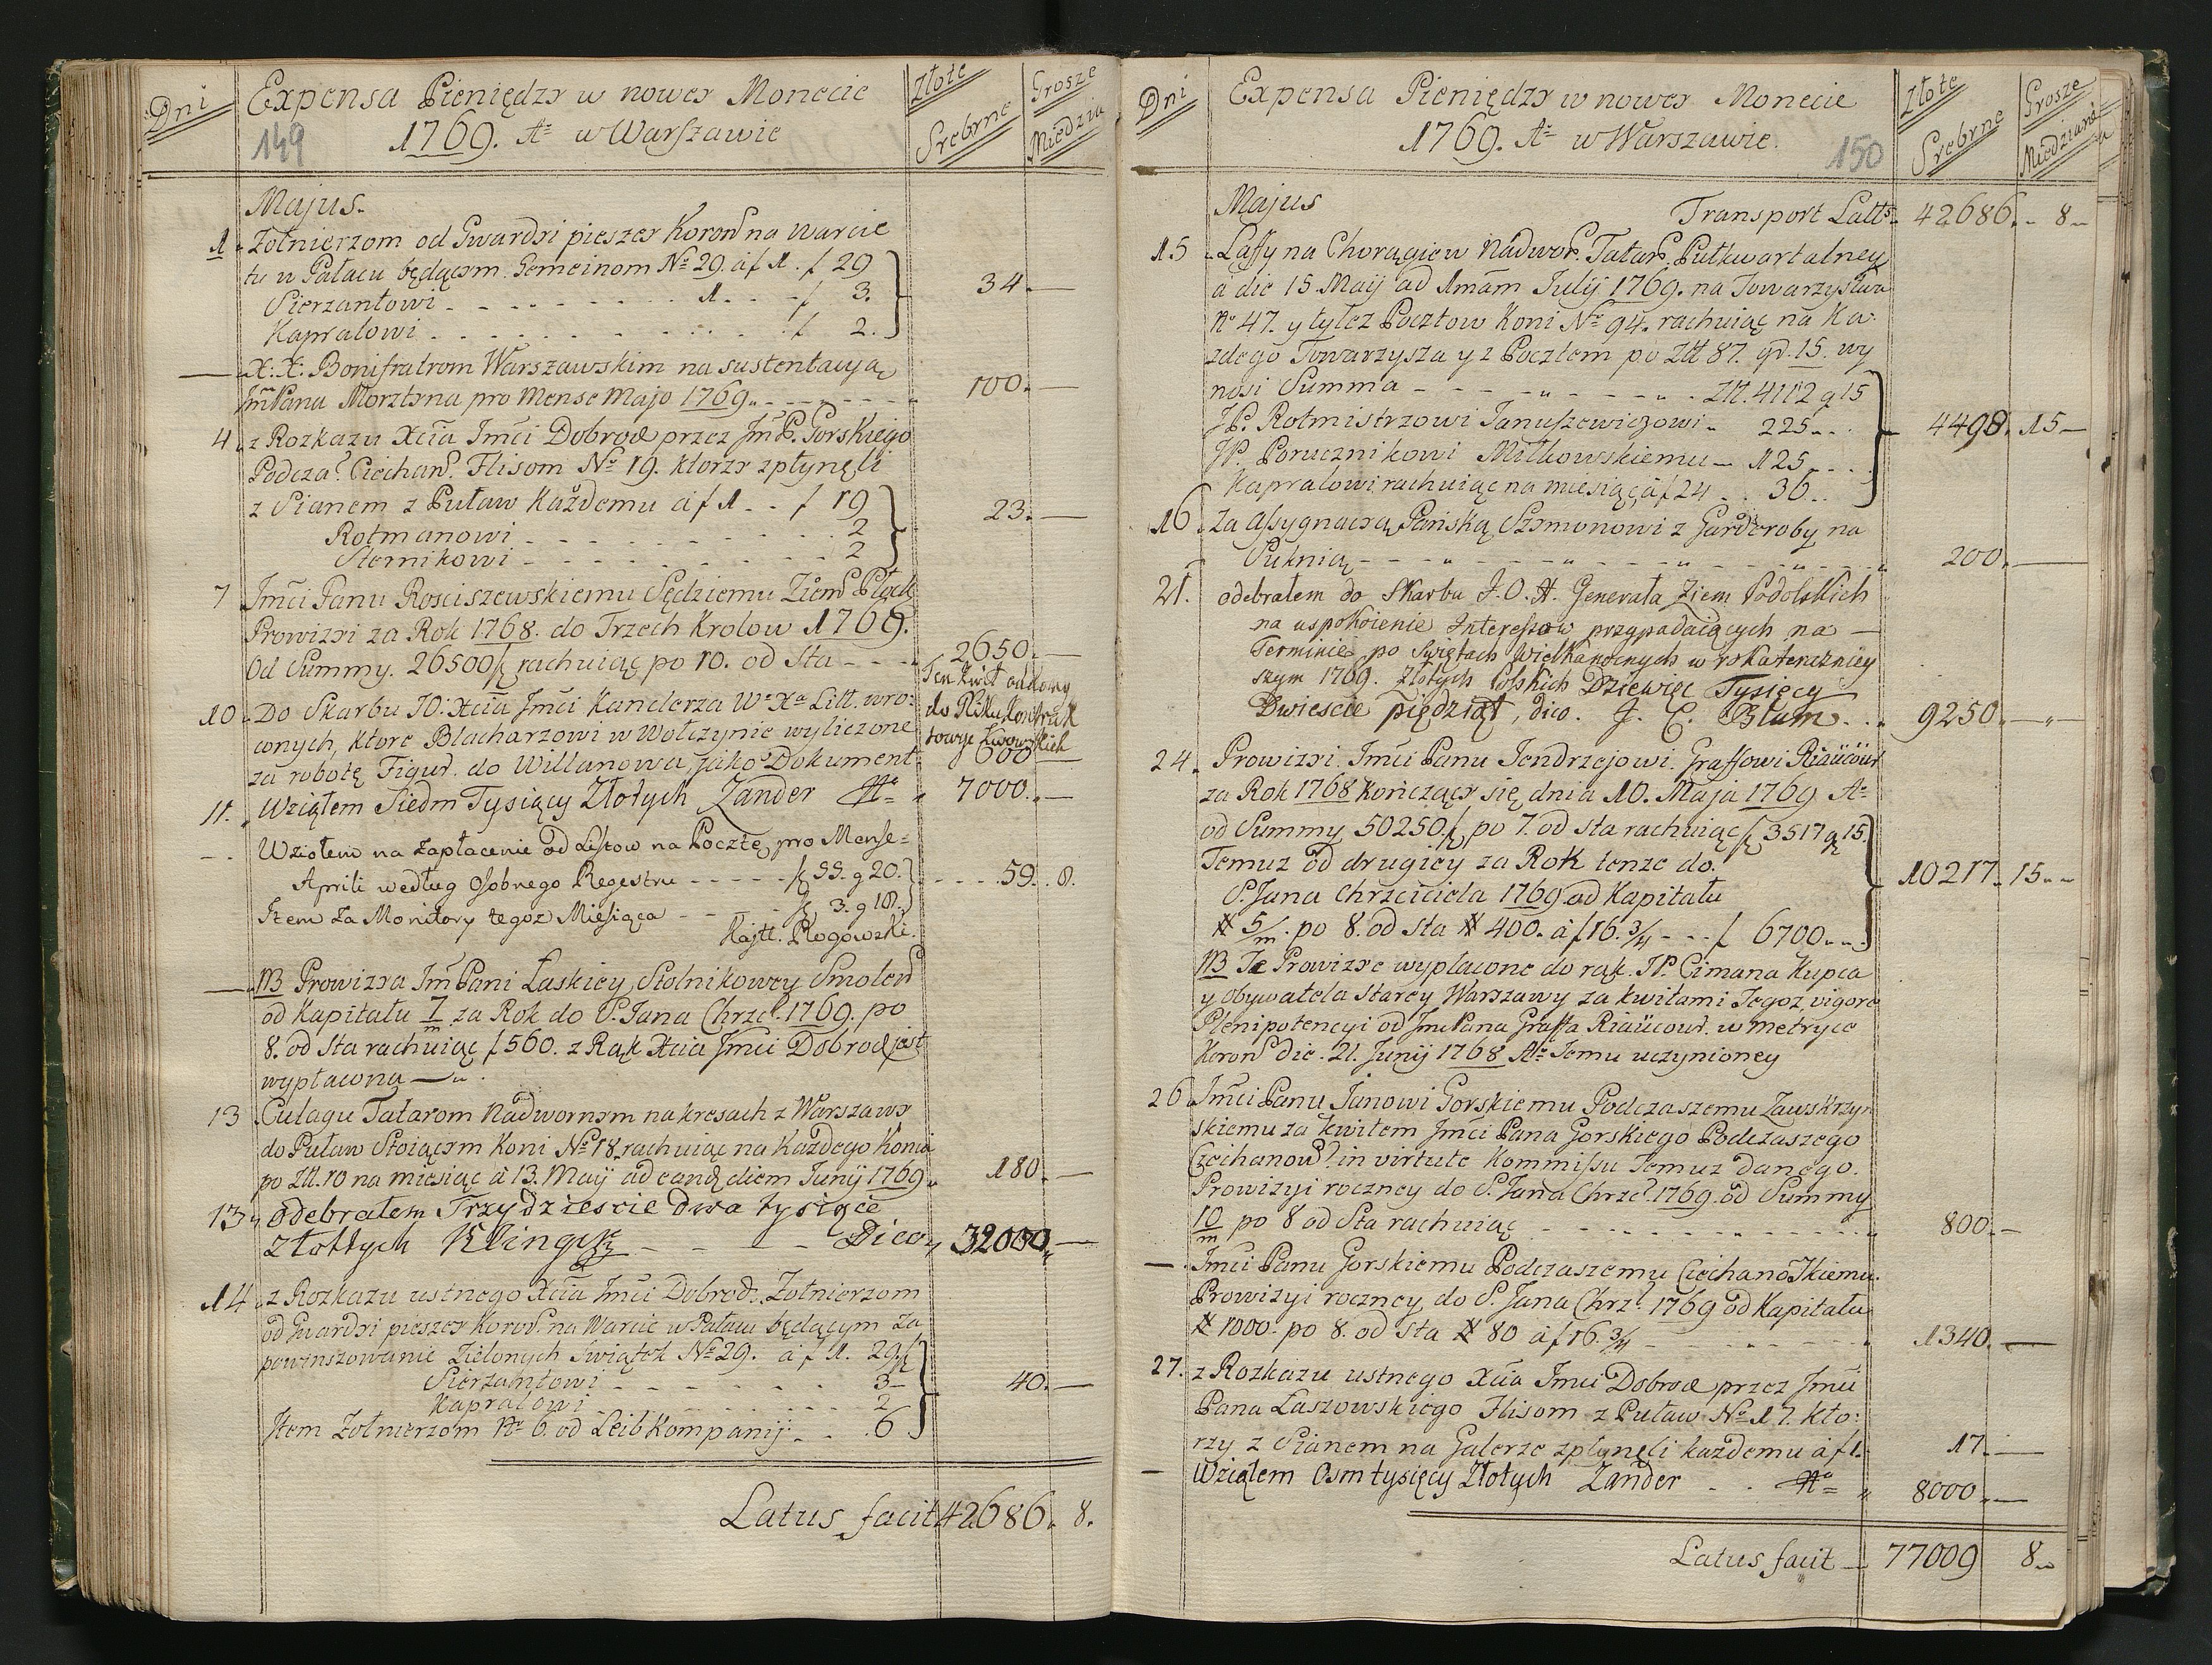 Dni
Expensa Pieniędzy w nowey Monecie
Złote Srebrne
Grosze Miedzia
149
1769. Aº w Warszawie
Majus.
1. Zołnierzom od Gwardyi pieszey Koron na warcie
tu w Pałacu będącym. Gemeinom Nº 29. à f 1. f 29
Sierzantowi - - - - 1 - - f 3. 34.—
Kapralowi - - - - f 2.
— X. X. Bonifratrom Warszawskim na sustentacyą
JmPana Morztyna pro Mense Majo 1769. - - - 100.—
4. z Rozkazu Xcia Jmci Dobrod przez JmP. Gorskiego
Podcza. Ciechan. Flisom Nº 19. ktorzy zpłynęli
z Sianem z Puław Każdemu à f 1. . f 19
Rotmanowi - - - - 2 23.—
Sternikowi - - - - 2
7. Jmci Panu Rosciszewskiemu Sędziemu Ziem Płock
Prowizyi za Rok 1768. do Trzech Krolow 1769.
Od Summy. 26500 f rachuiąc po 10. od Sta - - - 2650.—
Ten kwit oddany
do Piku kontrak
towye Lwowskich
10. Do Skarbu JO: Xcia Jmci Kanclerza Wº Xª Litt. wro:
conych, ktore Blacharzowi w Wołczynie wyliczone
za robotę Figur. do Willanowa, jako Dokument 600—
11. Wziąłem Siedm Tysięcy Złotych Zander 7000.—
— . Wziołem na zapłacenie od Listow na Pocztę, pro Mense=
Aprili według osobnego Regestru - - - - - f 55. g 20. - - - . 59. . 8.
Item za Monitory tegoz Miesiąca - - - - f 3. g 18.
Kajtt. Rogowski.
— NB Prowizya JmPani Laskiey Stolnikowey Smolen
od Kapitału 7/m za Rok do S. Jana Chrzc. 1769. po
8. od Sta rachuiąc f 560. z Rąk Xcia Jmci Dobrod jest
wypłacona —
13. Culagu Tatarom Nadwornym na kresach z Warszawy
do Puław Stoiącym Koni Nº 18. rachuiąc na Każdego Konia
po Złł. 10 na miesiąc à 13. Maij ad eand. diem Junij 1769. 180.—
13. odebrałem Trzydziescie dwa tysiące
złottych Kling - - - Dico 32000.—
14. z Rozkazu ustnego Xcia Jmci Dobrod. Zołnierzom
od Gwardyi pieszey Koron. na Warcie w Pałacu będącym za
powinszowanie Zielonych Swiątek Nº 29. à f 1. 29 f
Sierzantowi - - - - 3— 40.—
Kapralowi - - - - 2
Item Zołnierzom Nº 6. od Leib Kompanij - . . 6
Latus facit 42686. 8.
Dni
Expensa Pieniędzy w nowey Monecie
1769. Aº w Warszawie.
150
Złote Srebrne
Grosze Miedziane
Majus Transport Latt. 42686. - 8—
15. Laffy na Chorągiew Nadwor. Tatar. Pułkwartalney
à die 15 Maij ad 1mam Julij 1769. na Towarzystwa
Nº 47. y tylez Pocztow Koni Nº 94. rachuiąc na Ka.
zdego Towarzysza y z Pocztem po Złł 87. gr. 15. wy
nosi Summa - - - - - - . Złł. 4112 g 15
JP. Rotmistrzowi Januszewiczowi . 225 - - 4498. 15—
JP. Porucznikowi Miłkowskiemu — 125 - - -
Kapralowi rachuiąc na miesiąc à f 24 . . 36 . .
16. Za assygnacyą Pańską Szymonowi z Garderoby na
Suknią - - - - - 200.—
21. odebrałem do Skarbu J. O. X. Generała Ziem Podolskich
na uspokoienie Interessow przypadaiących na —
Terminie po Swiętach Wielkanocnych w roku teraznieу
szym 1769. Złotych Polskich Dziewięc Tysięcy
Dwiescie piędziąt, dico. J. C. Blum . . . 9250.—
24. Prowizyi. Jmci Panu Jendrzejowi. Graffowi Riaucour
za Rok 1768 kończący się dnia 10. Maja 1769 Aº
od Summy 50250. f po 7. od sta rachuiąc f 3517 g 15.
Temuz od drugiey za Rok tenze do.
S. Jana Chrzciciela 1769 od Kapitału 10217. 15. -
# 5/m. po 8. od Sta # 400. à f 16. 3/4 - - f 6700. - -
NB Te Prowizye wypłacone do rąk. JP. Cimana Kupca
y obywatela Starey Warszawy za kwitami Tegoz vigore
Plenipotencyi od JmcPana Graffa Riaucour. w metryce
Koron die. 21. Junij 1768 Aº Temu uczynioney
26. Jmci Panu Janowi Gorskiemu Podczaszemu Zawskrzyn
skiemu za kwitem Jmci Pana Gorskiego Podczaszego
Czechanow. in virtute Kommissu Temuz danego.
Prowizyi roczney do S. Jana Chrzc. 1769. od Summy
10/m po 8 od Sta rachuiąc - - - - - 800.—
— . Jmci Panu Gorskiemu Podczaszemu Ciechanoskiemu.
Prowizyi roczney do S. Jana Chrz. 1769 od Kapitału
# 1000. po 8. od Sta # 80 à f 16. 3/4 - - - - 1340.—
27. z Rozkazu ustnego Xcia Jmci Dobrod przez Jmci
Pana Laszowskiego Flisom z Puław Nº 17. kto:
rzy z Sianem na Galerze zpłynęli każdemu à f 1. 17.—
— Wziąłem Osm tysięcy Złotych Zander . . 8000.—
Latus facit — 77009 8—